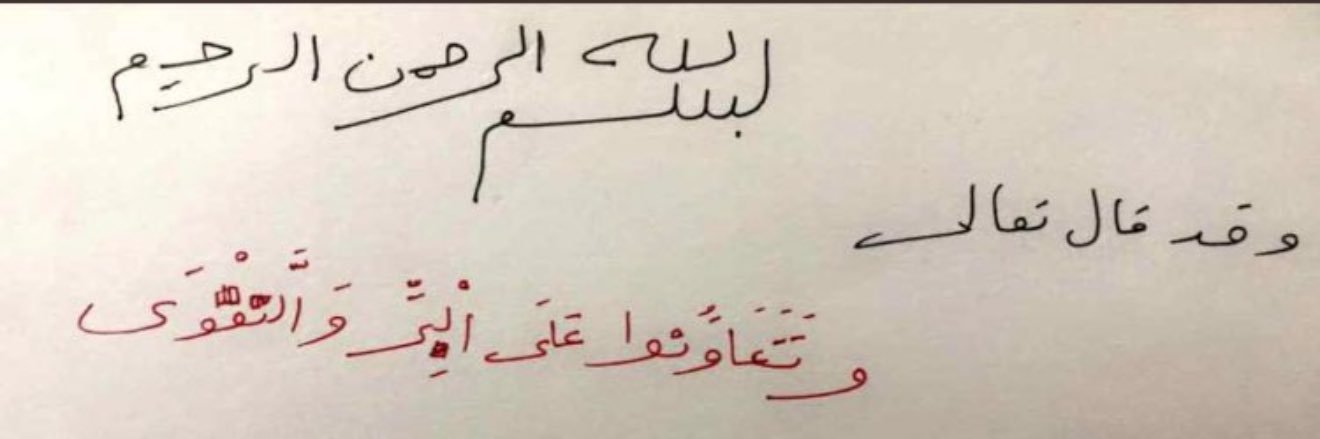 بسم الله الرحمن الرحيم
وقد قال تعالى
وتَتَعَاوَنُوا عَلَى الْبِرِّ وَالتَّقْوَى